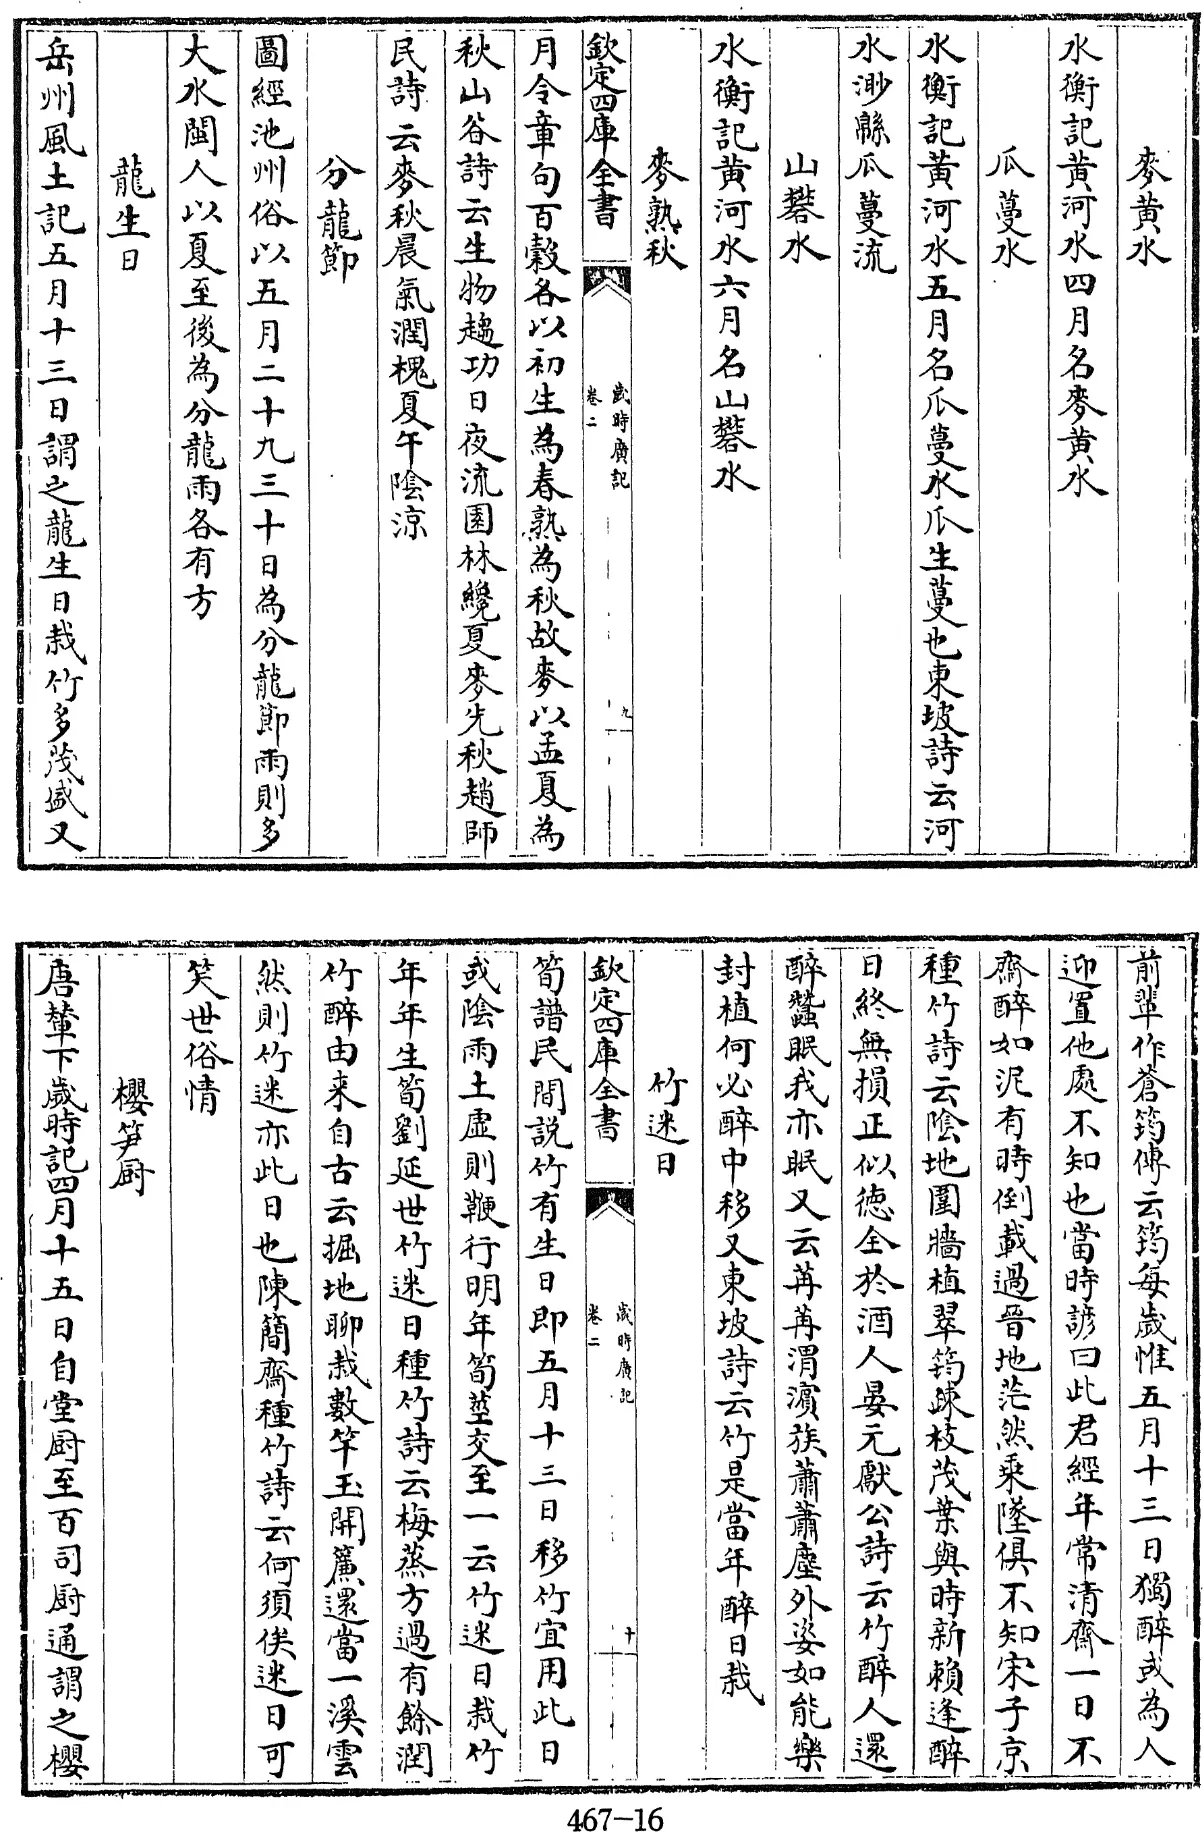 麥黄水
水衡記黄河水四月名麥黄水
瓜蔓水
水衡記黄河水五月名瓜蔓水瓜生蔓也東坡詩云河
水渺緜瓜蔓流
山礬水
水衡記黄河水六月名山礬水
麥熟秋
欽定四庫全書
歲時廣記
卷二
九
月令章句百穀各以初生為春熟為秋故麥以孟夏為
秋山谷詩云生物趨功日夜流園林纔夏麥先秋趙師
民詩云麥秋晨氣潤槐夏午陰涼
分龍節
圖經池州俗以五月二十九三十日為分龍節雨則多
大水閩人以夏至後為分龍雨各有方
龍生日
岳州風土記五月十三日謂之龍生日栽竹多茂盛又
前輩作蒼筠傳云筠每歲惟五月十三日獨醉或為人
迎置他處不知也當時諺曰此君經年常清齋一日不
齋醉如泥有時倒載過晉地茫然乘墜俱不知宋子京
種竹詩云陰地圍牆植翠筠疎枝茂葉與時新賴逢醉
日終無損正似德全於酒人晏元獻公詩云竹醉人還
醉蠶眠我亦眠又云苒苒渭濵族蕭蕭塵外姿如能樂
封植何必醉中移又東坡詩云竹是當年醉日栽
竹迷日
欽定四庫全書
歲時廣記
卷二
十
筍譜民間説竹有生日即五月十三日移竹宜用此日
或陰雨土虚則鞭行明年筍莖交至一云竹迷日栽竹
年年生筍劉延世竹迷日種竹詩云梅蒸方過有餘潤
竹醉由來自古云掘地聊栽數竿玉開簾還當一溪雲
然則竹迷亦此日也陳簡齋種竹詩云何須俟迷日可
笑世俗情
櫻笋厨
唐輦下歲時記四月十五日自堂厨至百司厨通謂之櫻
467-16